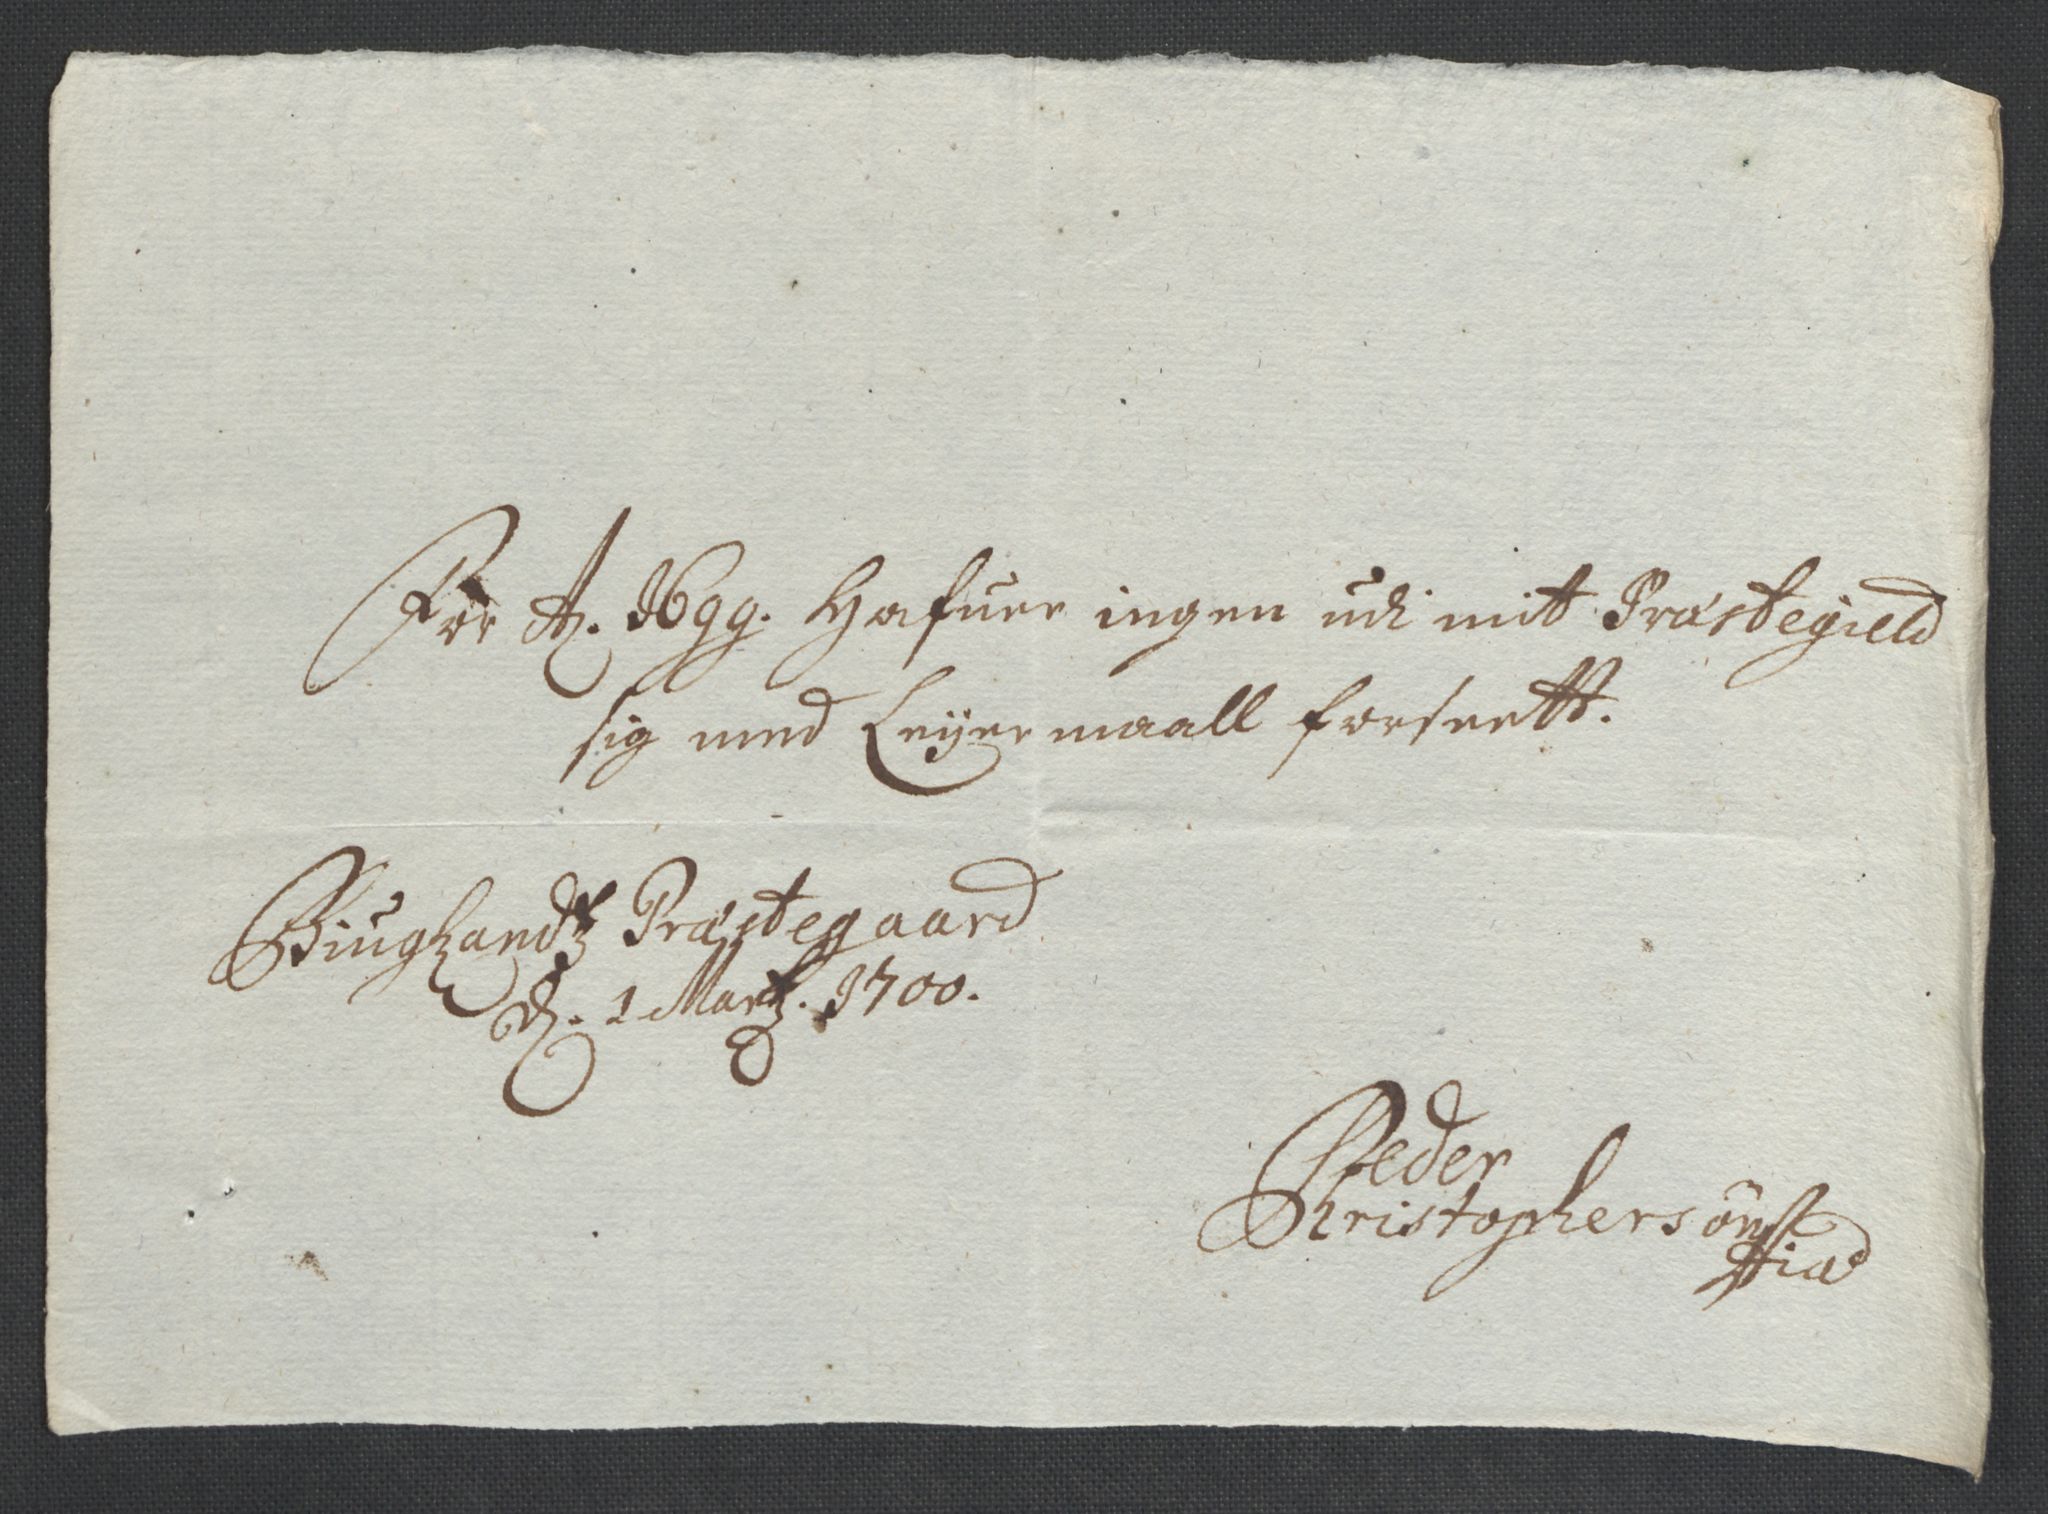 For A. 1699. Hafuer ingen udi mit Præstegield
sig med Leyermaall forseett.
Biuglandtz Præstegaard
d. 1 Martz. 1700.
Peder
Christophersøn
Stia